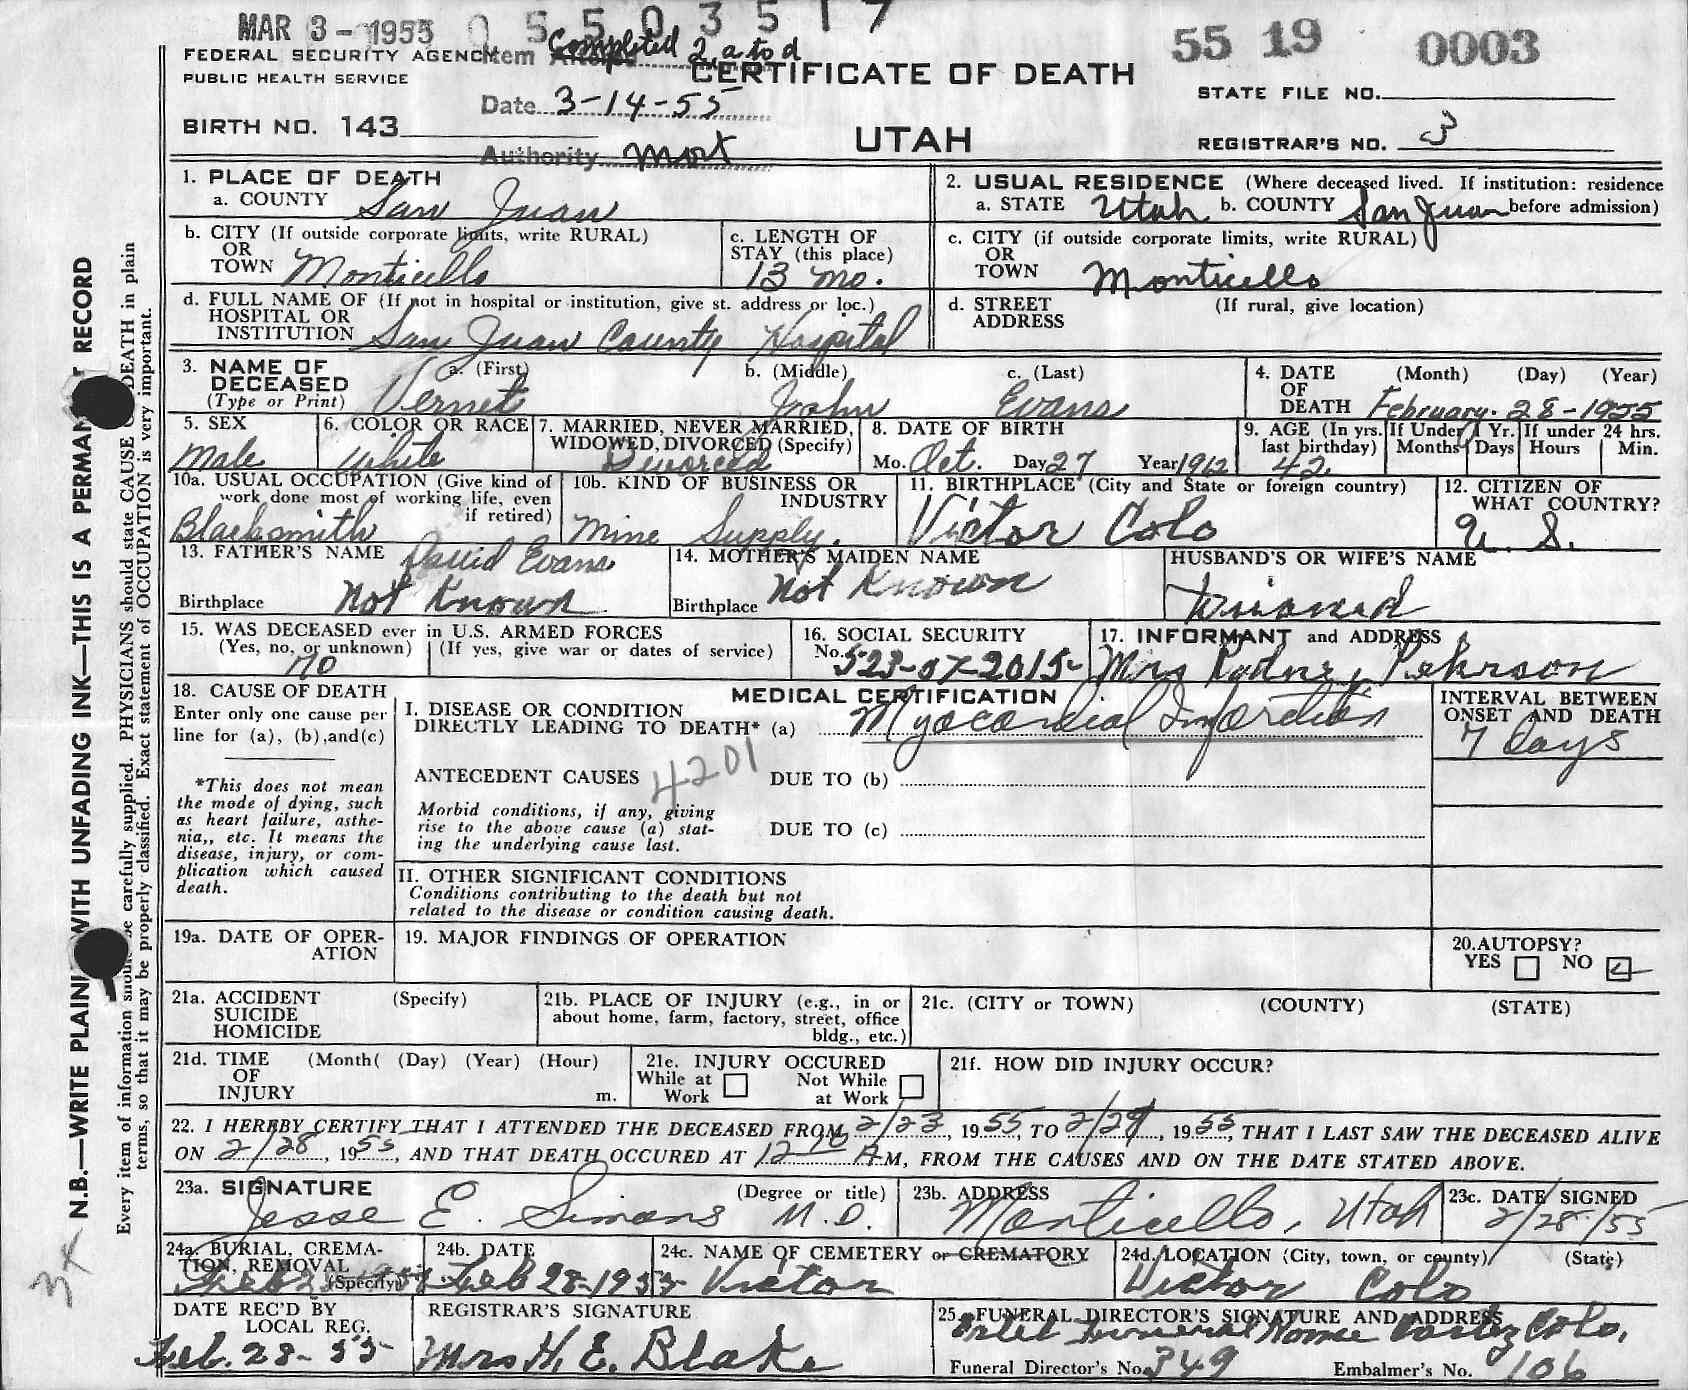 MAR 3 - 1955 0 5 5 0 3 5 1 7
55 19 0003
FEDERAL SECURITY AGENCY Item Completed 2, a to d
PUBLIC HEALTH SERVICE
CERTIFICATE OF DEATH
STATE FILE NO.
Date 3-14-55
BIRTH NO. 143
UTAH
REGISTRAR'S NO. 3
Authority Mort
1. PLACE OF DEATH
a. COUNTY San Juan
2. USUAL RESIDENCE (Where deceased lived. If institution: residence
a. STATE Utah b. COUNTY San Juan before admission)
b. CITY (If outside corporate limits, write RURAL)
OR
TOWN Monticello
c. LENGTH OF
STAY (this place)
13 mo.
c. CITY (if outside corporate limits, write RURAL)
OR
TOWN Monticello
d. FULL NAME OF (If not in hospital or institution, give st. address or loc.)
HOSPITAL OR
INSTITUTION San Juan County Hospital
d. STREET (If rural, give location)
ADDRESS
3. NAME OF
DECEASED
(Type or Print)
a. (First) b. (Middle) c. (Last)
Vernet John Evans
4. DATE (Month) (Day) (Year)
OF
DEATH February. 28-1955
5. SEX
Male
6. COLOR OR RACE
White
7. MARRIED, NEVER MARRIED,
WIDOWED, DIVORCED (Specify)
Divorced
8. DATE OF BIRTH
Mo. Oct. Day 27 Year 1912
9. AGE (In yrs. last birthday)
42.
If Under 1 Yr.
Months Days
If under 24 hrs.
Hours Min.
10a. USUAL OCCUPATION (Give kind of
work done most of working life, even
if retired)
Blacksmith
10b. KIND OF BUSINESS OR
INDUSTRY
Mine Supply.
11. BIRTHPLACE (City and State or foreign country)
Victor Colo
12. CITIZEN OF
WHAT COUNTRY?
U. S.
13. FATHER'S NAME David Evans
Birthplace Not Known
14. MOTHER'S MAIDEN NAME
Not Known
Birthplace
HUSBAND'S OR WIFE'S NAME
15. WAS DECEASED ever in U.S. ARMED FORCES
(Yes, no, or unknown) (If yes, give war or dates of service)
no
16. SOCIAL SECURITY
No. 523-07-2015
17. INFORMANT and ADDRESS
Mrs Rodney Pehrson
18. CAUSE OF DEATH
Enter only one cause per
line for (a), (b),and(c)
*This does not mean
the mode of dying, such
as heart failure, asthe-
nia,, etc. It means the
disease, injury, or com-
plication which caused
death.
MEDICAL CERTIFICATION
I. DISEASE OR CONDITION
DIRECTLY LEADING TO DEATH* (a) Myocardial Infarction
INTERVAL BETWEEN
ONSET AND DEATH
7 days
ANTECEDENT CAUSES 4201 DUE TO (b)
Morbid conditions, if any, giving
rise to the above cause (a) stat-
ing the underlying cause last.
DUE TO (c)
II. OTHER SIGNIFICANT CONDITIONS
Conditions contributing to the death but not
related to the disease or condition causing death.
19a. DATE OF OPER-
ATION
19. MAJOR FINDINGS OF OPERATION
20.AUTOPSY?
YES NO
21a. ACCIDENT (Specify)
SUICIDE
HOMICIDE
21b. PLACE OF INJURY (e.g., in or
about home, farm, factory, street, office
bldg., etc.)
21c. (CITY or TOWN) (COUNTY) (STATE)
21d. TIME (Month( (Day) (Year) (Hour)
OF
INJURY m.
21e. INJURY OCCURED
While at Work Not While at Work
21f. HOW DID INJURY OCCUR?
22. I HEREBY CERTIFY THAT I ATTENDED THE DECEASED FROM 2/23, 1955, TO 2/28, 1955, THAT I LAST SAW THE DECEASED ALIVE
ON 2/28, 1955, AND THAT DEATH OCCURED AT 12 10 A.M, FROM THE CAUSES AND ON THE DATE STATED ABOVE.
23a. SIGNATURE (Degree or title)
Jesse E. Simons M.D.
23b. ADDRESS
Monticello, Utah
23c. DATE SIGNED
2/28/55
24a. BURIAL, CREMA-
TION, REMOVAL
(Specify)
24b. DATE
Feb 28-1955
24c. NAME OF CEMETERY or CREMATORY
Victor
24d. LOCATION (City, town, or county) (State)
Victor Colo
DATE REC'D BY
LOCAL REG.
Feb. 28-55
REGISTRAR'S SIGNATURE
Mrs H. E. Blake
25. FUNERAL DIRECTOR'S SIGNATURE AND ADDRESS
Ertel Funeral Home Cortez Colo.
Funeral Director's No. 349 Embalmer's No. 106
N.B.—WRITE PLAINLY WITH UNFADING INK—THIS IS A PERMANENT RECORD
Every item of information should be carefully supplied. PHYSICIANS should state CAUSE OF DEATH in plain
terms, so that it may be properly classified. Exact statement of OCCUPATION is very important.